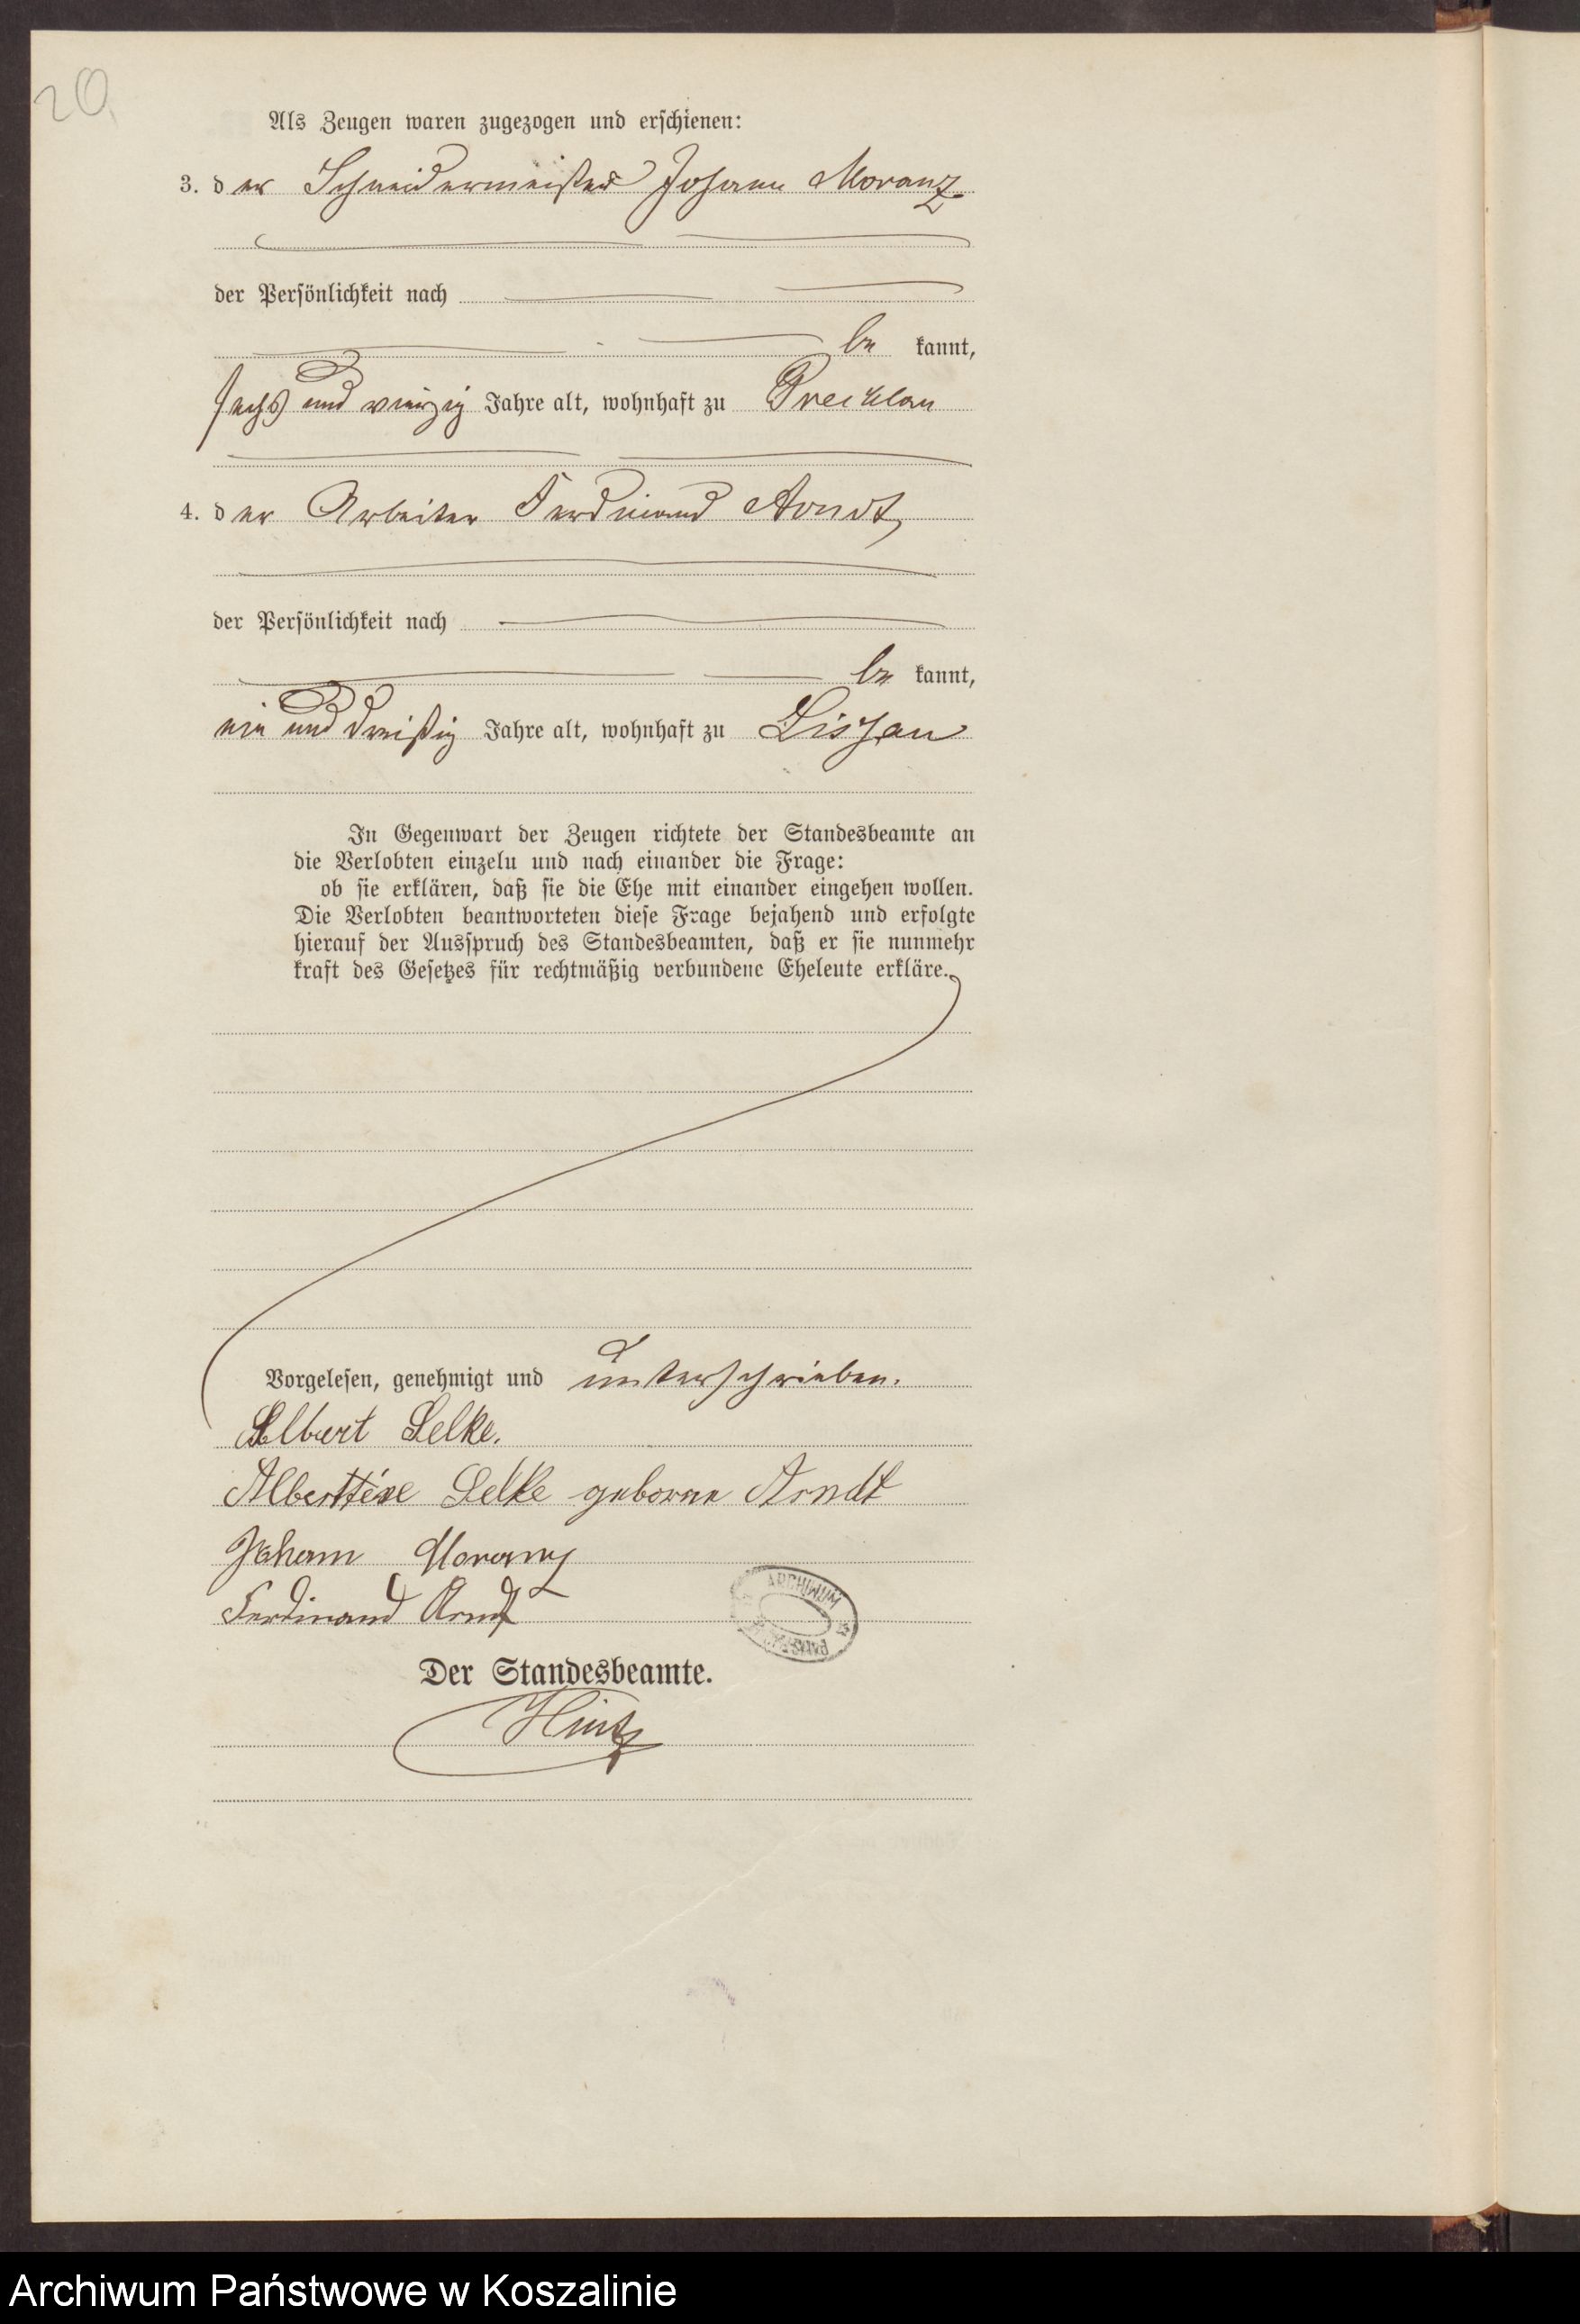 20
Als Zeugen waren zugezogen und erschienen:
3. der Schneidermeister Johann Moranz
der Persönlichkeit nach
be kannt,
sechs und vierzig Jahre alt, wohnhaft zu Precklau
4. der Arbeiter Ferdinand Arndt,
der Persönlichkeit nach
be kannt,
ein und dreißig Jahre alt, wohnhaft zu Lissau
In Gegenwart der Zeugen richtete der Standesbeamte an
die Verlobten einzeln und nach einander die Frage:
ob sie erklären, daß sie die Ehe mit einander eingehen wollen.
Die Verlobten beantworteten diese Frage bejahend und erfolgte
hierauf der Ausspruch des Standesbeamten, daß er sie nunmehr
kraft des Gesetzes für rechtmäßig verbundene Eheleute erkläre.
Vorgelesen, genehmigt und unterschrieben.
Albert Selke.
Alberttine Selke geborne Arndt
Johann Moranz
Ferdinand Arndt
ARCHIWUM
Der Standesbeamte.
Hintz
Archiwum Państwowe w Koszalinie